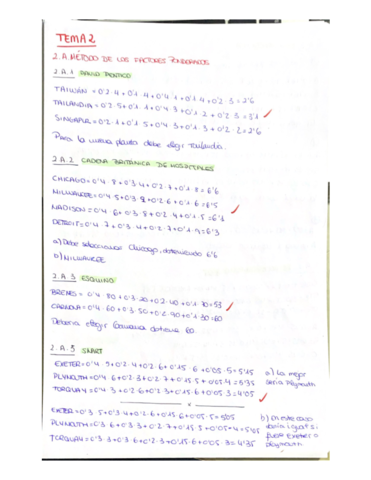 TEMA 2
2.A. MÉTODO DE LOS FACTORES PONDERADOS
2.A.1
TAIWÁN = 0'2·4+0'1·4+0'4·1+0'1·4+0'2·3=2'6
TAILANDIA = 0'2·5+0'1·1+0'4·3+0'1·2+0'2·3=3'1
SINGAPUR = 0'2·1+0'1·5+0'4·3+0'1·3+0'2·2=2'6
Para la nueva planta debe elegir Tailandia.
2.A.2 CADENA BRITÁNICA DE HOSPITALES
CHICAGO=0'4·8+0'3·4+0'2·7+0'1·8=6'6
MILWAUKEE=0'4·5+0'3·8+0'2·6+0'1·6=6'5
MADISON=0'4·6+0'3·8+0'2·4+0'1·5=6'1
DETROIT=0'4·7+0'3·4+0'2·7+0'1·9=6'3
a) Debe seleccionar Chicago, obteniendo 6'6
b) MILWAUKEE
2.A.3 ESQUIMO
BRENES = 0'4·80+0'3·20+0'2·40+0'1·70=53
CARMONA=0'4·60+0'3·50+0'2·90+0'1·30=60
Debería elegir Carmona obtiene 60.
2.A.5 SMART
EXETER=0'4·9+0'2·4+0'2·6+0'15·6+0'05·5=5'15
PLYMOUTH=0'4·6+0'2·3+0'2·7+0'15·5+0'05·4=5'35
TORQUAY=0'4·3+0'2·6+0'2·3+0'15·6+0'05·3=4'05
a) La mejor
sería Plymouth
EXETER=0'3·5+0'3·4+0'2·6+0'15·6+0'05·5=5'05
PLYMOUTH=0'3·6+0'3·3+0'2·7+0'15·5+0'05·4=5'05
TORQUAY=0'3·3+0'3·6+0'2·3+0'15·6+0'05·3=4'35
b) En este caso
daría igual si
fuese Exeter o
Plymouth